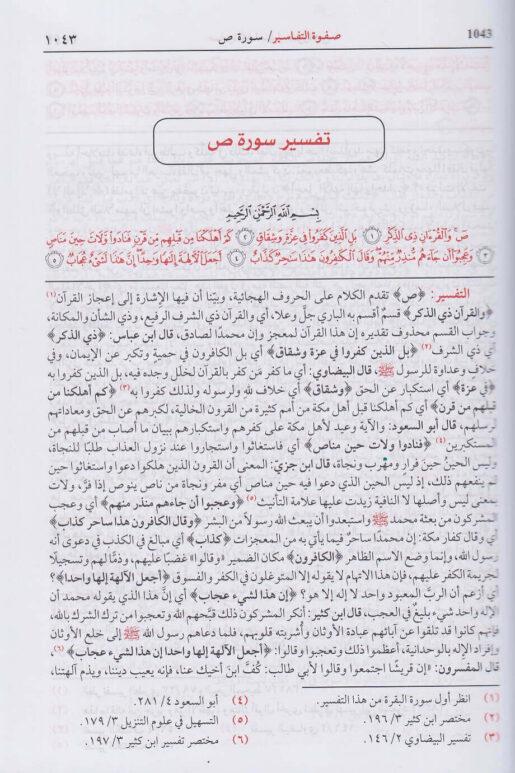 1043 صفوة التفاسير/ سورة ص ١٠٤٣
تفسير سورة ص
بِسْمِ اللَّهِ الرَّحْمَٰنِ الرَّحِيمِ
صَ وَالْقُرْءَانِ ذِي الذِّكْرِ ﴿١﴾ بَلِ الَّذِينَ كَفَرُوا فِي عِزَّةٍ وَشِقَاقٍ ﴿٢﴾ كَمْ أَهْلَكْنَا مِن قَبْلِهِم مِّن قَرْنٍ فَنَادَوا وَّلَاتَ حِينَ مَنَاصٍ
﴿٣﴾ وَعَجِبُوا أَن جَاءَهُم مُّنذِرٌ مِّنْهُمْ وَقَالَ الْكَافِرُونَ هَٰذَا سَاحِرٌ كَذَّابٌ ﴿٤﴾ أَجَعَلَ الْآلِهَةَ إِلَٰهًا وَاحِدًا إِنَّ هَٰذَا لَشَيْءٌ عُجَابٌ ﴿٥﴾
التفسير: ﴿ص﴾ تقدم الكلام على الحروف الهجائية، وبيّنا أن فيها الإشارة إلى إعجاز القرآن(١)
﴿والقرآن ذي الذكر﴾ قسمٌ أقسم به الباري جلَّ وعلا، أي والقرآن ذي الشرف الرفيع، وذي الشأن والمكانة،
وجواب القسم محذوف تقديره إن هذا القرآن لمعجز وإن محمدًا لصادق، قال ابن عباس: ﴿ذي الذكر﴾
أي ذي الشرف(٢) ﴿بل الذين كفروا في عزة وشقاق﴾ أي بل الكافرون في حمية وتكبر عن الإيمان، وفي
خلاف وعداوة للرسول ﷺ، قال البيضاوي: أي ما كفر مَن كفر بالقرآن لخلل وجده فيه، بل الذين كفروا به
﴿في عزة﴾ أي استكبار عن الحق ﴿وشقاق﴾ أي خلاف لله ولرسوله ولذلك كفروا به(٣) ﴿كم أهلكنا من
قبلهم من قرن﴾ أي كم أهلكنا قبل أهل مكة من أمم كثيرة من القرون الخالية، لكبرهم عن الحق ومعاداتهم
لرسلهم، قال أبو السعود: والآية وعيد لأهل مكة على كفرهم واستكبارهم ببيان ما أصاب من قبلهم من
المستكبرين(٤) ﴿فنادوا ولات حين مناص﴾ أي فاستغاثوا واستجاروا عند نزول العذاب طلبًا للنجاة،
وليس الحينُ حينَ فرار ومهرب ونجاة، قال ابن جزيّ: المعنى أن القرون الذين هلكوا دعوا واستغاثوا حين
لم ينفعهم ذلك، إذ ليس الحين الذي دعوا فيه حين مناص أي مفر ونجاة من ناص ينوص إذا فرَّ، ولات
بمعنى ليس وأصلها لا النافية زيدت عليها علامة التأنيث(٥) ﴿وعجبوا أن جاءهم منذر منهم﴾ أي وعجب
المشركون من بعثة محمد ﷺ واستبعدوا أن يبعث الله رسولاً من البشر ﴿وقال الكافرون هذا ساحر كذاب﴾
أي وقال كفار مكة: إن محمدًا ساحرٌ فيما يأتي به من المعجزات ﴿كذاب﴾ أي مبالغ في الكذب في دعوى أنه
رسول الله، وإنما وضع الاسم الظاهر ﴿الكافرون﴾ مكان الضمير «وقالوا» غضبًا عليهم، وذمًّا لهم وتسجيلاً
لجريمة الكفر عليهم، فإن هذا الاتهام لا يقوله إلا المتوغلون في الكفر والفسوق ﴿أجعل الآلهة إلهًا واحدا﴾؟
أي أزعم أن الربَّ المعبود واحد لا إله إلا هو؟ ﴿إن هذا لشيء عجاب﴾ أي إنَّ هذا الذي يقوله محمد أن
الإله واحد شيء بليغٌ في العجب، قال ابن كثير: أنكر المشركون ذلك قبَّحهم الله وتعجبوا من ترك الشرك بالله،
فإنهم كانوا قد تلقوا عن آبائهم عبادة الأوثان وأُشربته قلوبهم، فلما دعاهم رسول الله ﷺ إلى خلع الأوثان
وإفراد الإله بالوحدانية، أعظموا ذلك وتعجبوا وقالوا: ﴿أجعل الآلهة إلهًا واحدا إن هذا لشيء عجاب﴾(٦).
قال المفسرون: «إن قريشًا اجتمعوا وقالوا لأبي طالب: كُفَّ ابن أخيك عنا، فإنه يعيب ديننا، ويذم آلهتنا،
(١) انظر أول سورة البقرة من هذا التفسير. (٤) أبو السعود ٤/ ٢٨١.
(٢) مختصر ابن كثير ٣/ ١٩٦. (٥) التسهيل في علوم التنزيل ٣/ ١٧٩.
(٣) تفسير البيضاوي ٢/ ١٤٦. (٦) مختصر تفسير ابن كثير ٣/ ١٩٧.